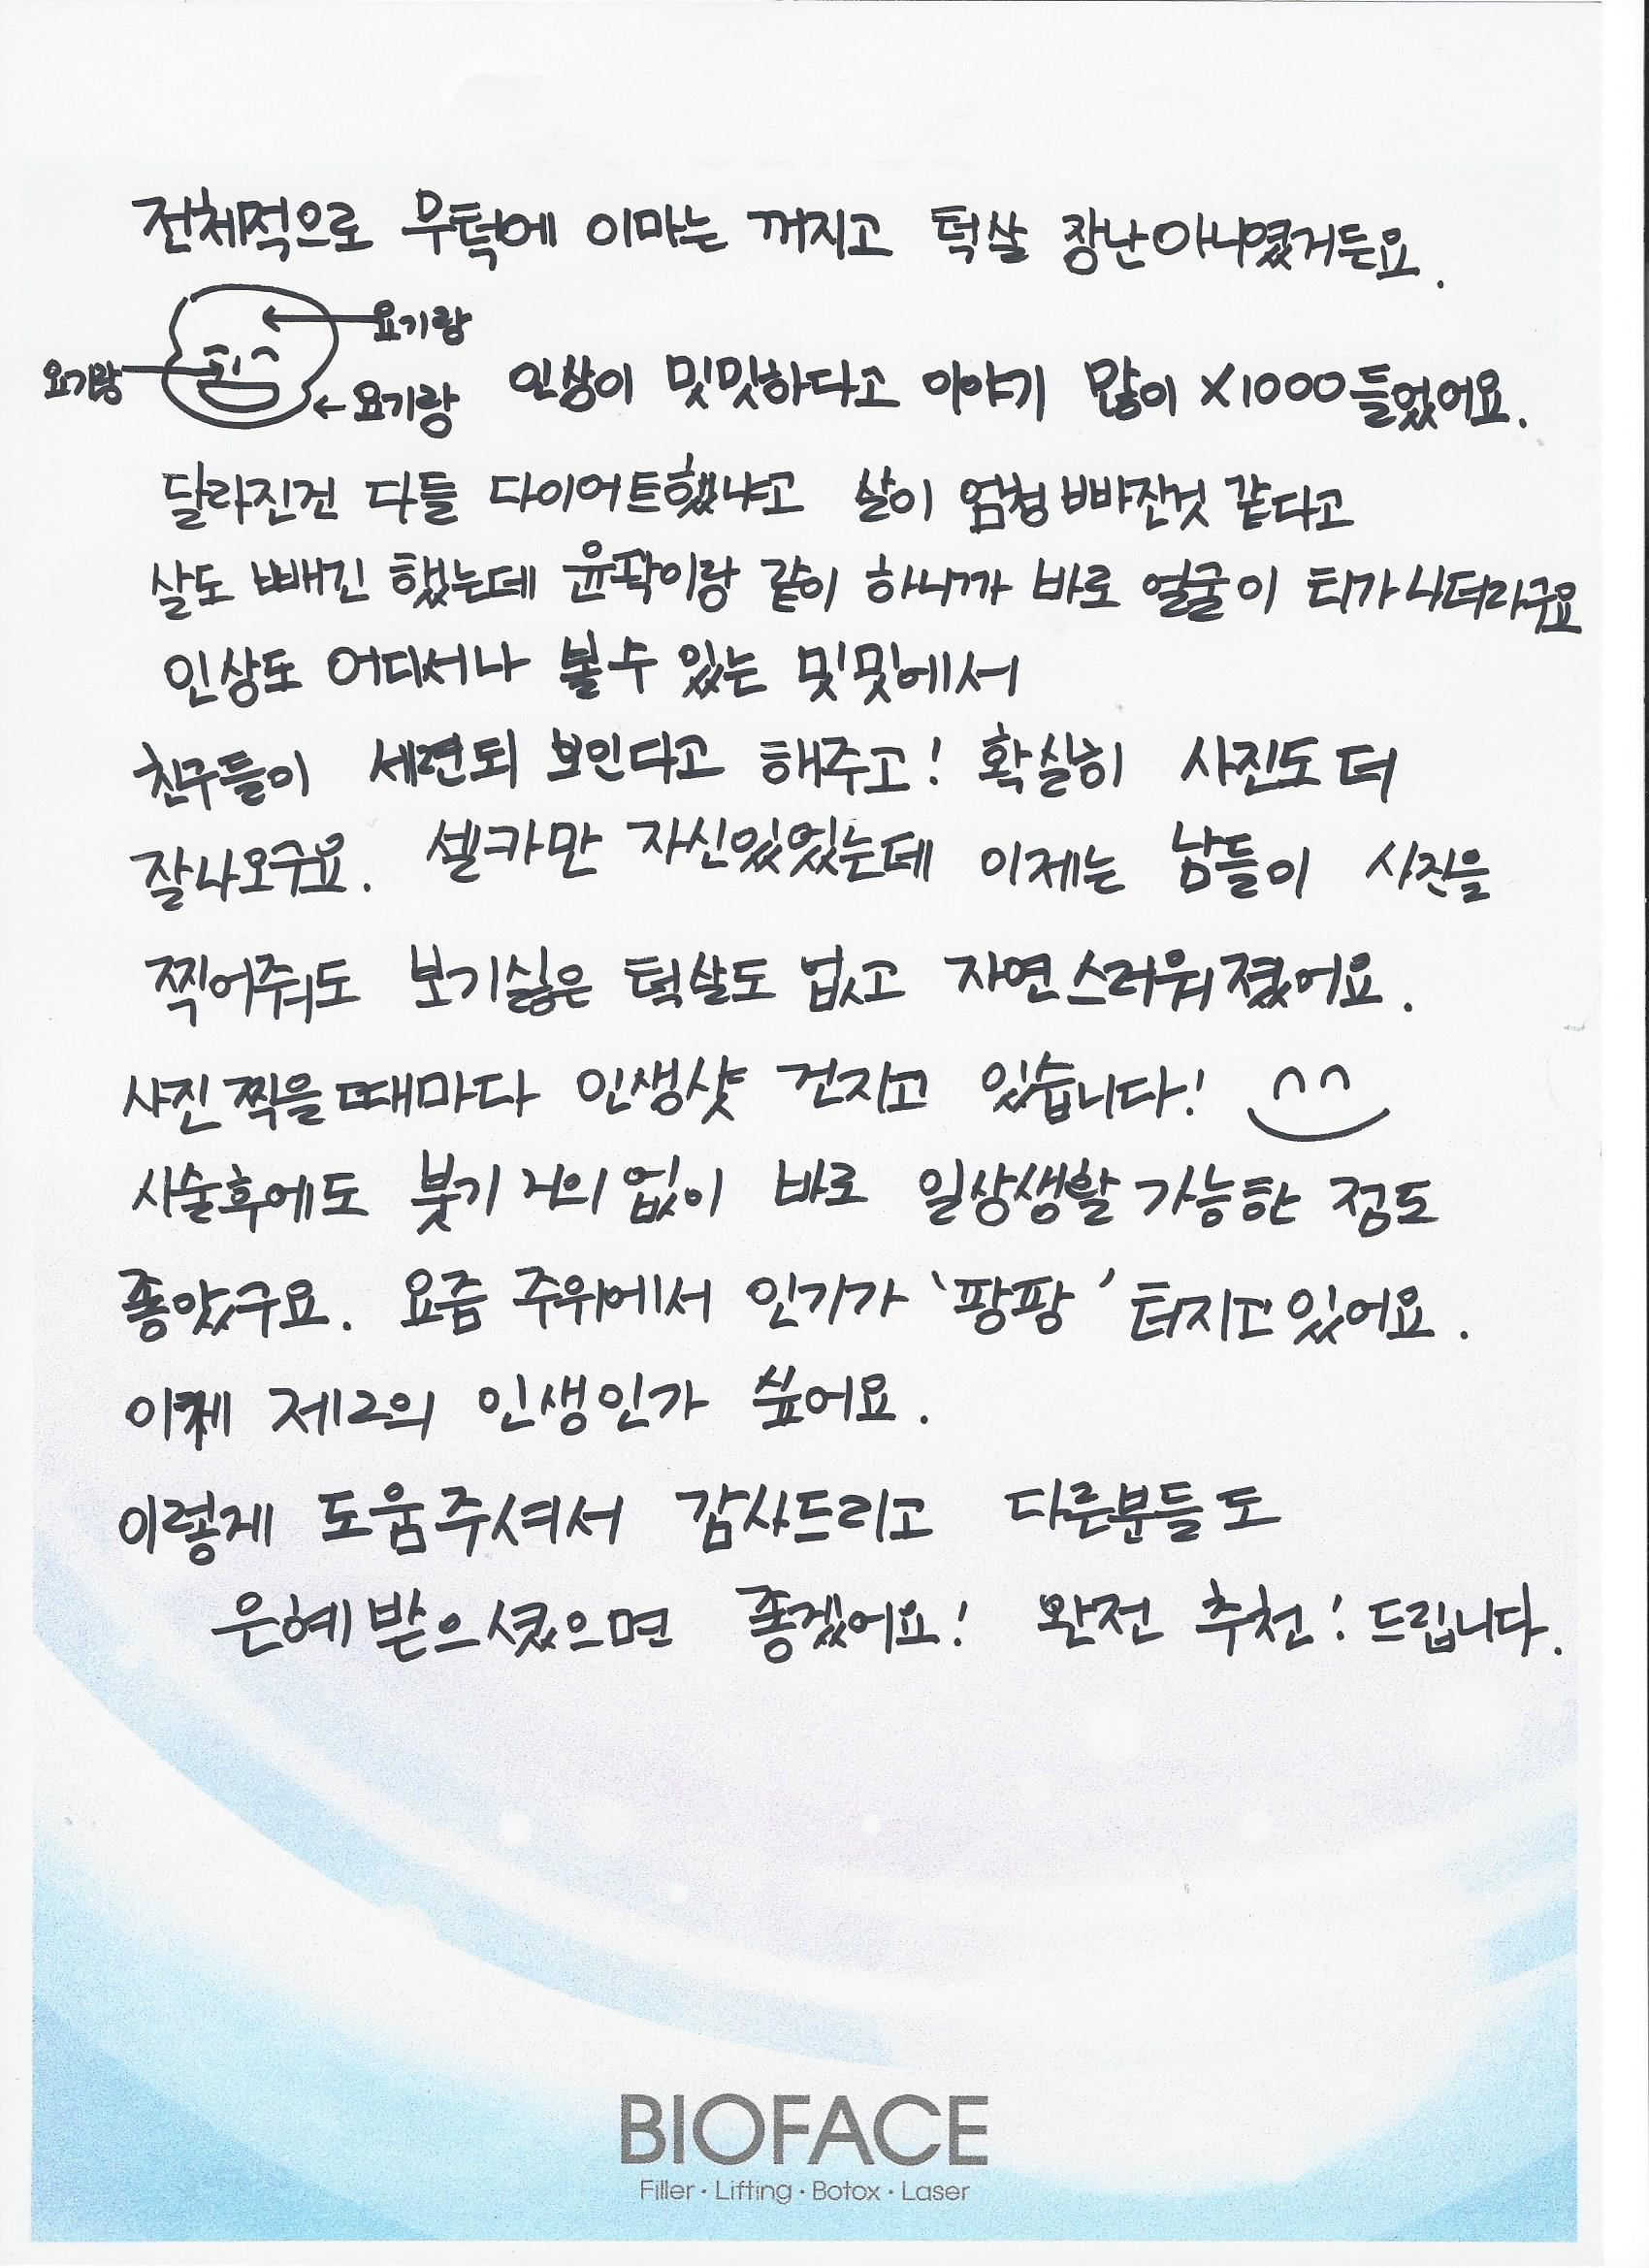 전체적으로 무턱에 이마는 꺼지고 턱살 장난아니였거든요.
요기랑
요기랑
요기랑
인상이 밋밋하다고 이야기 많이 X1000들었어요.
달라진건 다들 다이어트했냐고 살이 엄청 빠진것 같다고
살도 빼긴 했는데 윤곽이랑 같이 하니까 바로 얼굴이 티가 나더라구요
인상도 어디서나 볼수 있는 밋밋에서
친구들이 세련되 보인다고 해주고! 확실히 사진도 더
잘나오구요. 셀카만 자신있었는데 이제는 남들이 사진을
찍어줘도 보기싫은 턱살도 없고 자연스러워 졌어요.
사진 찍을때마다 인생샷 건지고 있습니다!
시술후에도 붓기 거의 없이 바로 일상생활 가능한 점도
좋았구요. 요즘 주위에서 인기가 '팡팡' 터지고있어요.
이게 제2의 인생인가 싶어요.
이렇게 도움주셔서 감사드리고 다른분들도
은혜받으셨으면 좋겠어요! 완전 추천! 드립니다.
BIOFACE
Filler · Lifting · Botox · Laser